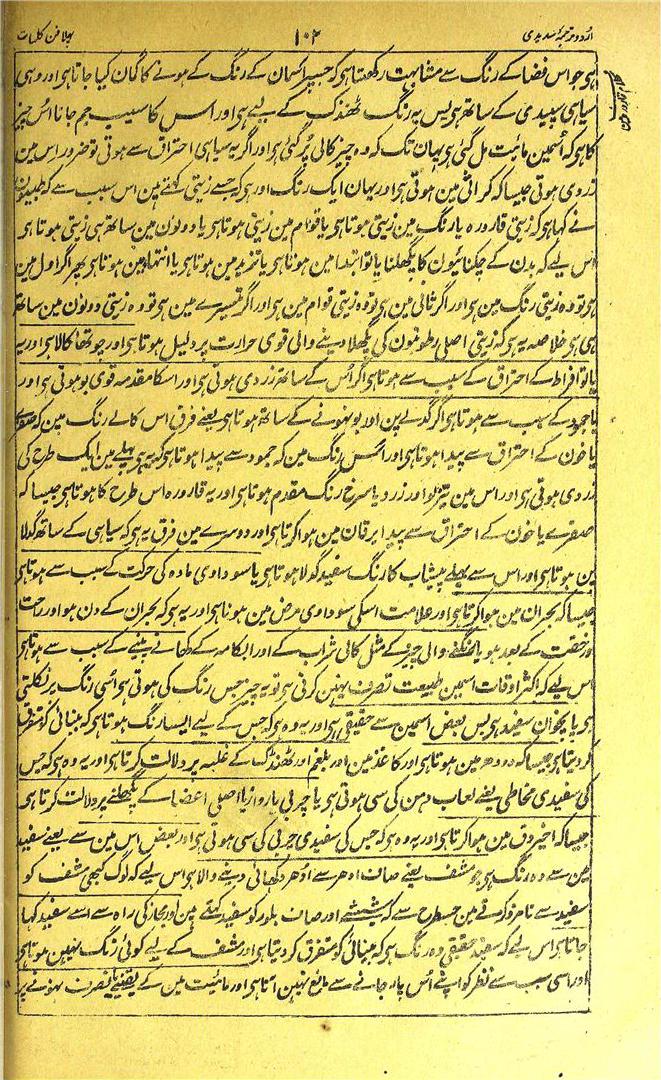 اُردو ترجمۂ سدیدی ۱۰۲ پہلا فن کلیات
ہی جو اس فضا کے رنگ سے مشابہت رکھتا ہو کہ جسپر آسمان کے رنگ کے ہونے کا گمان کیا جاتا ہی اور وہی
سیاہی سپیدی کے ساتھ ہی پس یہ رنگ ٹھنڈک کے لیے ہی اور اس کا سبب جم جانا اُس چیز
کا ہی کہ اُسمین مائیت مل گئی ہی یہان تک کہ وہ چیز کالی پڑ گئی ہی اور اگر یہ سیاہی احتراق سے ہوتی تو ضرور اس مین
زردی ہوتی جیسا کہ کراثی مین ہوتی ہی اور یہان ایک رنگ اور ہی کہ جسے زیتی کہتے مین اس سبب سے کہ طبیبون
نے کہا ہی کہ زیتی قارورہ یا رنگ مین زیتی ہوتا ہی یا قوام مین زیتی ہوتا ہی یا دونون مین ساتھ ہی زیتی ہوتا ہی
اس لیے کہ بدن کے چکنائیون کا پگھلنا یا تو ابتدا مین ہوتا ہی یا تزید مین ہوتا ہی یا انتہا مین ہوتا ہی پھر اگر اول مین
ہی تو وہ زیتی رنگ مین ہی اور اگر ثانی مین ہی تو وہ زیتی قوام مین ہی اور اگر تیسرے مین ہی تو وہ زیتی دونون مین ساتھ
ہی ہی خلاصہ یہ ہی کہ زیتی اصلی رطوبتون کی پگھلا دینے والی قوی حرارت پر دلیل ہوتا ہی اور چوتھا کالا ہی اور یہ
یا تو افراط کے احتراق کے سبب سے ہوتا ہی اگر اُس کے ساتھ زردی ہوتی ہی اور اسکا مقدمہ قوی بو ہوتی ہی اور
یا جمود کے سبب سے ہوتا ہی اگر گدلے پن اور بو نہونے کے ساتھ ہوتا ہی یعنے فرق اس کالے رنگ مین کہ صفرے
یا خون کے احتراق سے پیدا ہوتا ہی اور اُس رنگ مین کہ جمود سے پیدا ہوتا ہی کہ یہ ہی پہلے مین ایک طرح کی
زردی ہوتی ہی اور اس مین تیز بو اور زرد یا سرخ رنگ مقدم ہوتا ہی اور یہ قارورہ اس طرح کا ہوتا ہی جیسا کہ
صفرے یا خون کے احتراق سے پیدا یرقان مین ہوا کرتا ہی اور دوسرے مین فرق یہ ہی کہ سیاہی کے ساتھ گدلا
پن ہوتا ہی اور اس سے پہلے پیشاب کا رنگ سفید گدلا ہوتا ہی یا سوداوی مادہ کی حرکت کے سبب سے ہوتا ہی
جیسا کہ بحران مین ہوا کرتا ہی اور علامت اسکی سوداوی مرض مین ہونا ہی اور یہ ہی کہ بحران کے دن ہو اور راحت
اور خفت کے بعد ہو یا رنگنے والی چیز کے مثل کالی شراب کے اور ابکامہ کے کھانے پینے کے سبب سے ہوتا ہی
اس لیے کہ اکثر اوقات اسمین طبیعت تصرف نہین کرتی ہی تو یہ چیز جس رنگ کی ہوتی ہی اُسی رنگ پر نکلتی
ہی پانچوان سفید ہی پس بعض اسمین سے حقیقی ہی اور یہ وہ ہی کہ جس کے لیے ایسا رنگ ہوتا ہی کہ بینائی کو متفرق
کر دیتا ہی جیسا کہ دودھ مین ہوتا ہی اور کاغذ مین اور بلغم اور ٹھنڈک کے غلبہ پر دلالت کرتا ہی اور یہ وہ ہی کہ جس
کی سفیدی مخاطی یعنے لعاب دہن کی سی ہوتی ہی یا چربی یا روزیا اصلی اعضا کے پگھلنے پر دلالت کرتا ہی
جیسا کہ اخیر دق مین ہوا کرتا ہی اور یہ وہ ہی کہ جس کی سفیدی چربی کی سی ہوتی ہی اور بعض اس مین سے یعنے سفید
مین سے وہ رنگ ہی جو مشف یعنے صاف ادھر سے اُدھر دکھائی دینے والا ہی اس لیے کہ لوگ کبھی مشف کو
سفید سے نامزد کرتے مین جسطرح سے کہ شیشے اور صاف بلور کو سفید کہتے مین اور مجاز کی راہ سے اسے سفید کہا
جاتا ہی اس لیے کہ سفید حقیقی وہ رنگ ہی کہ بینائی کو متفرق کر دیتا ہی اور مشف کے لیے کوئی رنگ نہین ہوتا ہی
اور اسی سبب سے نظر کو اپنے اُس پار جانے سے مانع نہین آتا ہی اور مائیت مین کے یقینے یا تصرف نہونے پر